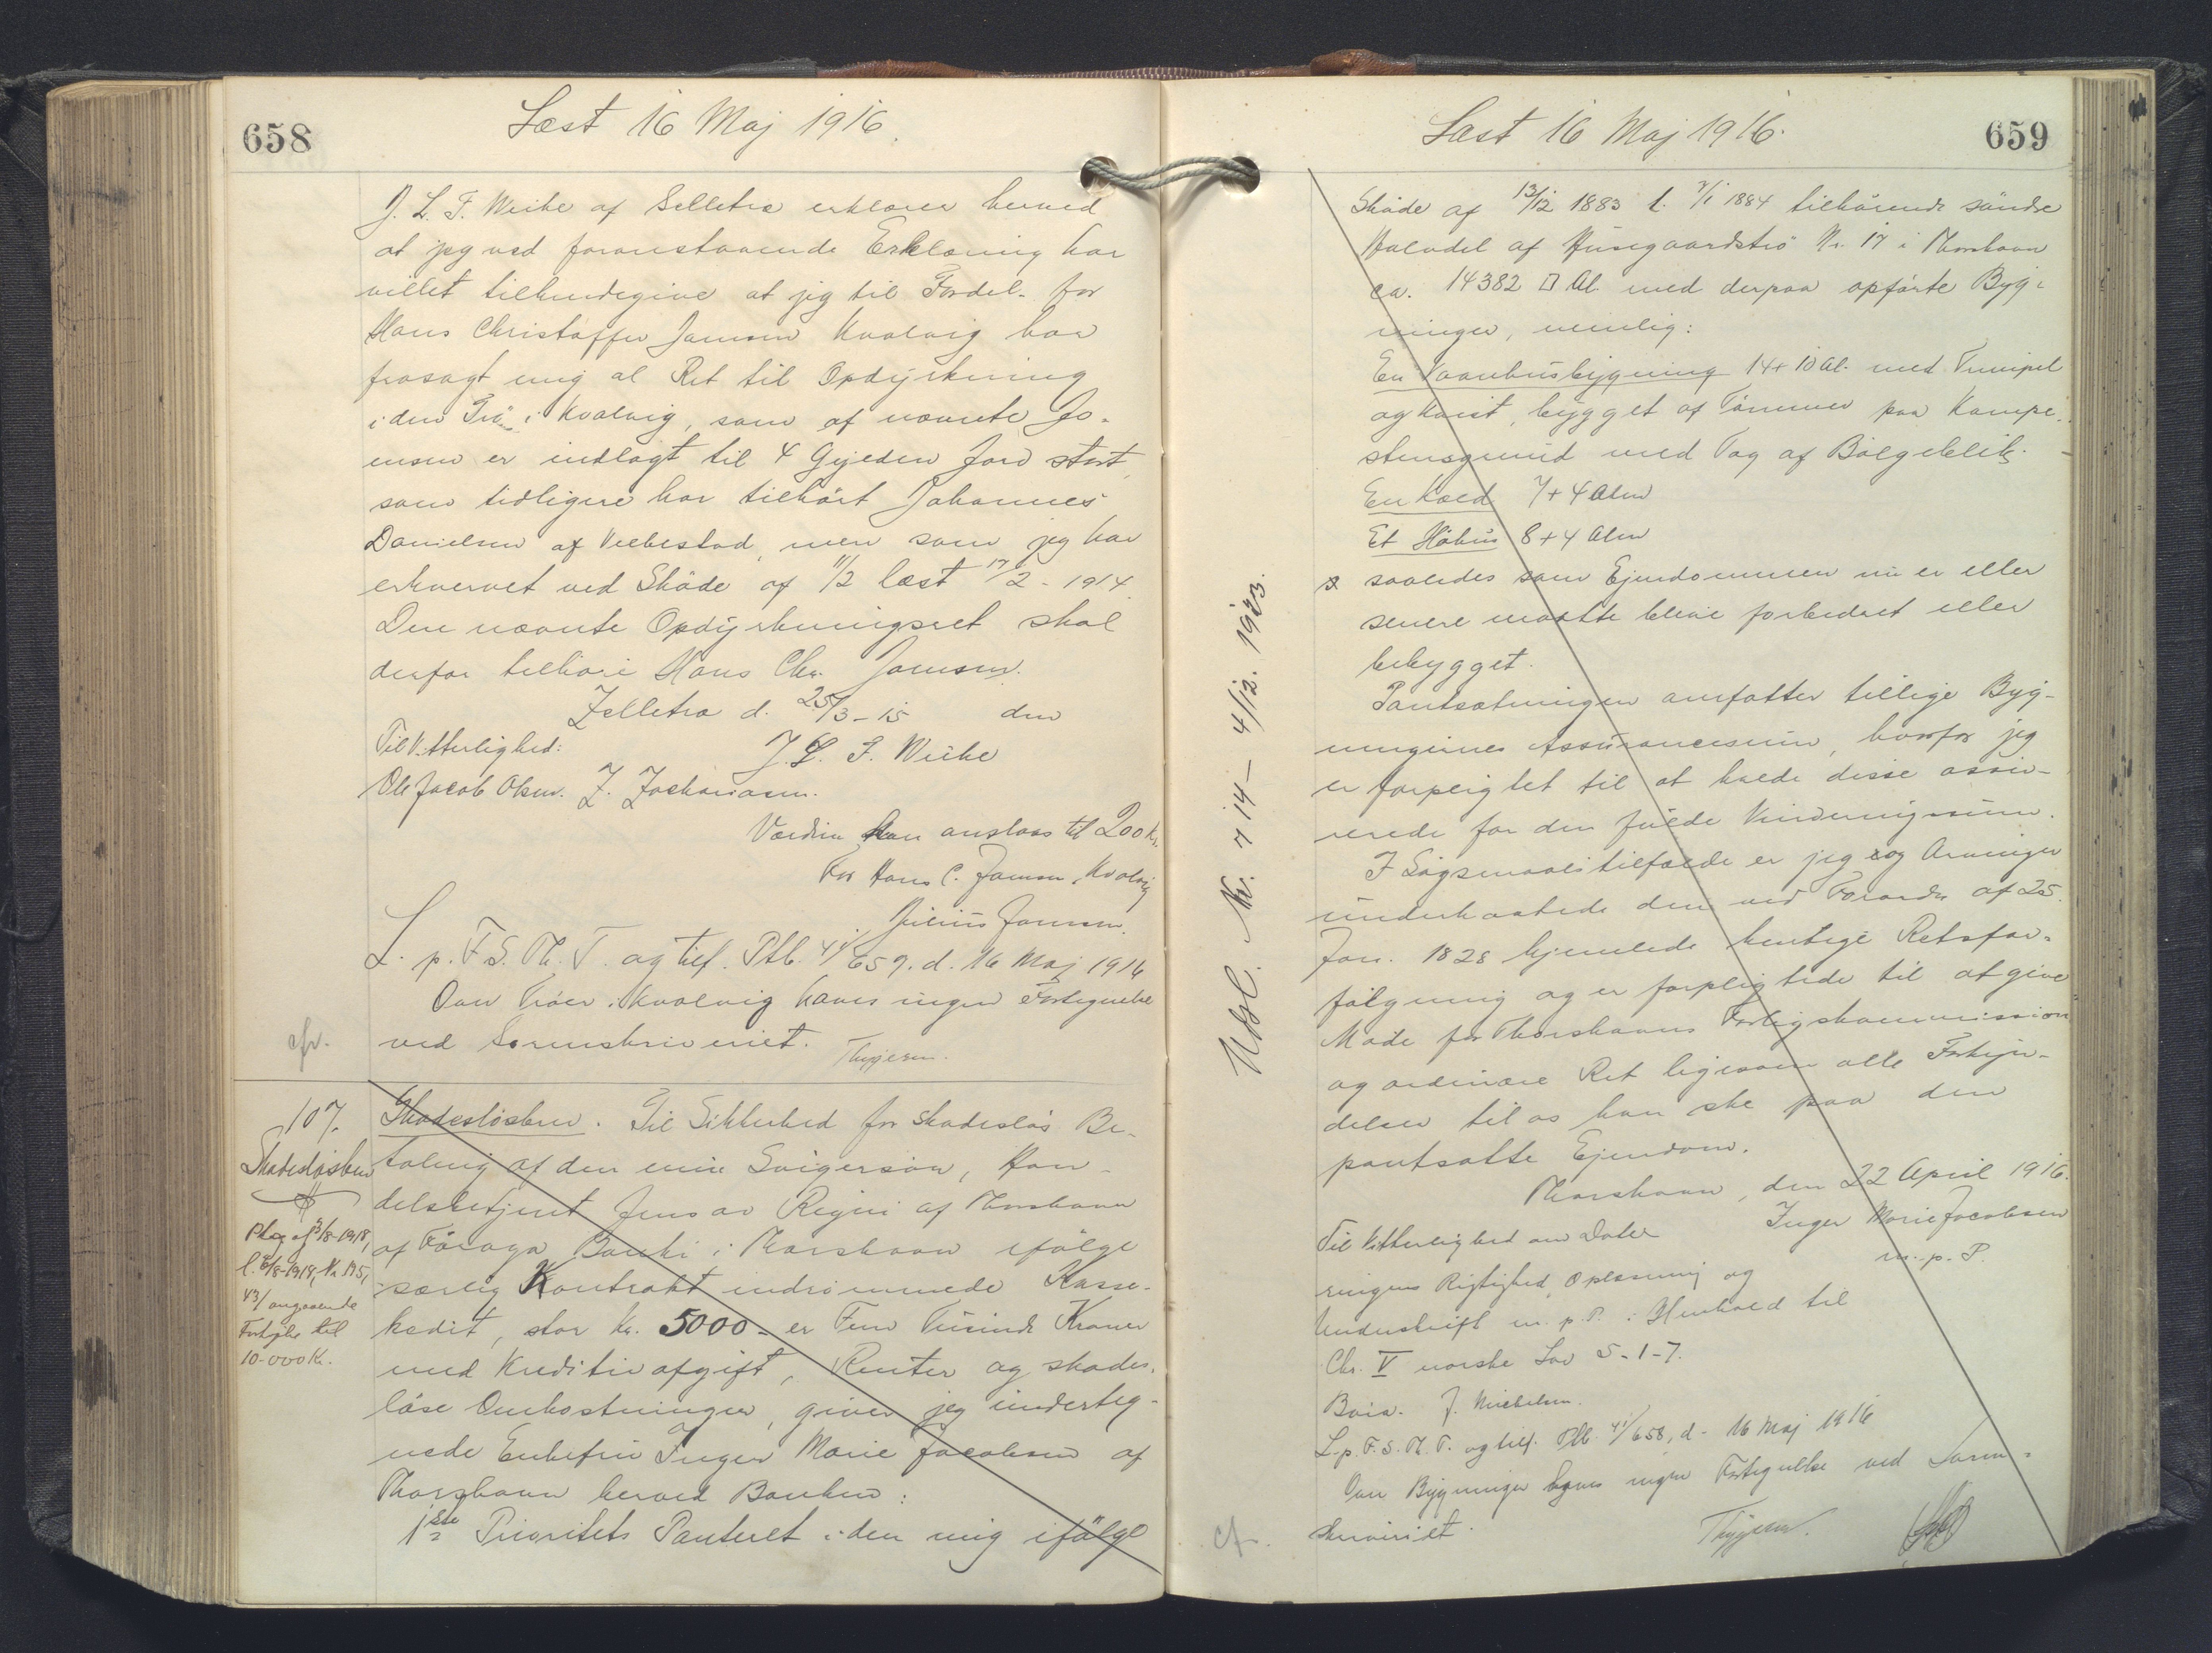 658
Læst 16 Maj 1916.
J. L. F. Weihe af Selletræ erklærer herved
at jeg ved foranstaaende Erklæring har
villet tilkendegive at jeg til Fordel for
Hans Christoffer Joensen Kvalvig har
frasagt mig al Ret til Opdyrkning
i den Trö i Kvalvig, som af nævnte Jo-
ensen er indlagt til 4 Gyeden Jord stort,
som tidligere har tilhört Johannes
Danielsen af Velbestad, men som jeg har
erhvervet ved Sköde af 11/2 læst 17/2 - 1914.
Den nævnte Opdyrkningsret skal
derfor tilhöre Hans Chr. Joensen.
Zelletræ d. 25/3-15 den
Til Vitterlighed:
J. L. F. Weihe
Ole Jacob Olsen. Z. Zachariasen.
Værdien kan anslaas til 200 Kr.
For Hans C. Joensen, Kvalvig
Julius Joensen.
L. p. F. S. Th. T. og tilf. Ptb. 41/659. d. 16 Maj 1916
Over Tröer i Kvalvig haves ingen Fortegnelse
cfr.
ved Sorenskriveriet. Thygesen.
107.
Skadeslösbrev
Skadeslösbrev. Til Sikkerhed for skadeslös Be-
taling af den min Svigersön, Han-
delsbetjent Jens av Reyni af Thorshavn
Pteg af 3/8-1918,
af Föroya Banki i Thorshavn ifölge
l. 6/8-1918, Nr. 195,
særlig Kontrakt indrömmede Kasse-
43/ angaaende
Forhöjelse til
kredit, stor Kr. 5000 - er Fem Tusinde Kroner
10-000 Kr.
med Kreditivafgift, Renter og skades-
löse Omkostninger, giver jeg underteg-
nede Enkefru Inger Marie Jacobsen af
Thorshavn herved Banken:
1ste Prioritets Panteret i den mig ifölge
659
Læst 16 Maj 1916.
Sköde af 13/12 1883 l. 7/1 1884 tilhörende söndre
Halvdel af Husegaardströ Nr. 17 i Thorshavn
ca. 14382 □ Al. med derpaa opförte Byg-
ninger, nemlig:
En Vaanhusbygning 14+10 Al. med Trempel
og Kvist, bygget af Tömmer paa Kampe-
stensgrund med Tag af Bölgeblik.
En Kæld 7+4 Alen
Et Höhus 8+4 Alen
saaledes som Ejendommen nu er eller
senere maatte blive forbedret eller
bebygget.
Pantsætningen omfatter tillige Byg-
ningernes Assurancesum, hvorfor jeg
er forpligtet til at holde disse assu-
rerede for den fulde Vurderingssum.
I Sögsmaalstilfælde er jeg og Arvinger
underkastede den ved Forordn af 25.
Jan. 1828 hjemlede hurtige Retsfor-
fölgning og er forpligtede til at give
Möde for Thorshavns Forligskommission
og ordinære Ret ligesom alle Forkyn-
delser til os kan ske paa den
pantsatte Ejendom.
Thorshavn, den 22 April 1916.
Inger Marie Jacobsen
m. p. P.
Til Vitterlighed om Date-
ringens Rigtighed, Oplæsning og
Underskrift m. p. P. i Henhold til
Chr. V norske Lov 5-1-7.
Bærø. J. Michelsen.
L. p. F. S. Th. T. og tilf. Ptb. 41/658, d. 16 Maj 1916
Over Bygninger haves ingen Fortegnelse ved Soren-
cfr.
skriveriet. Thygesen.
Udsl. Nr. 714 - 4/12. 1923.